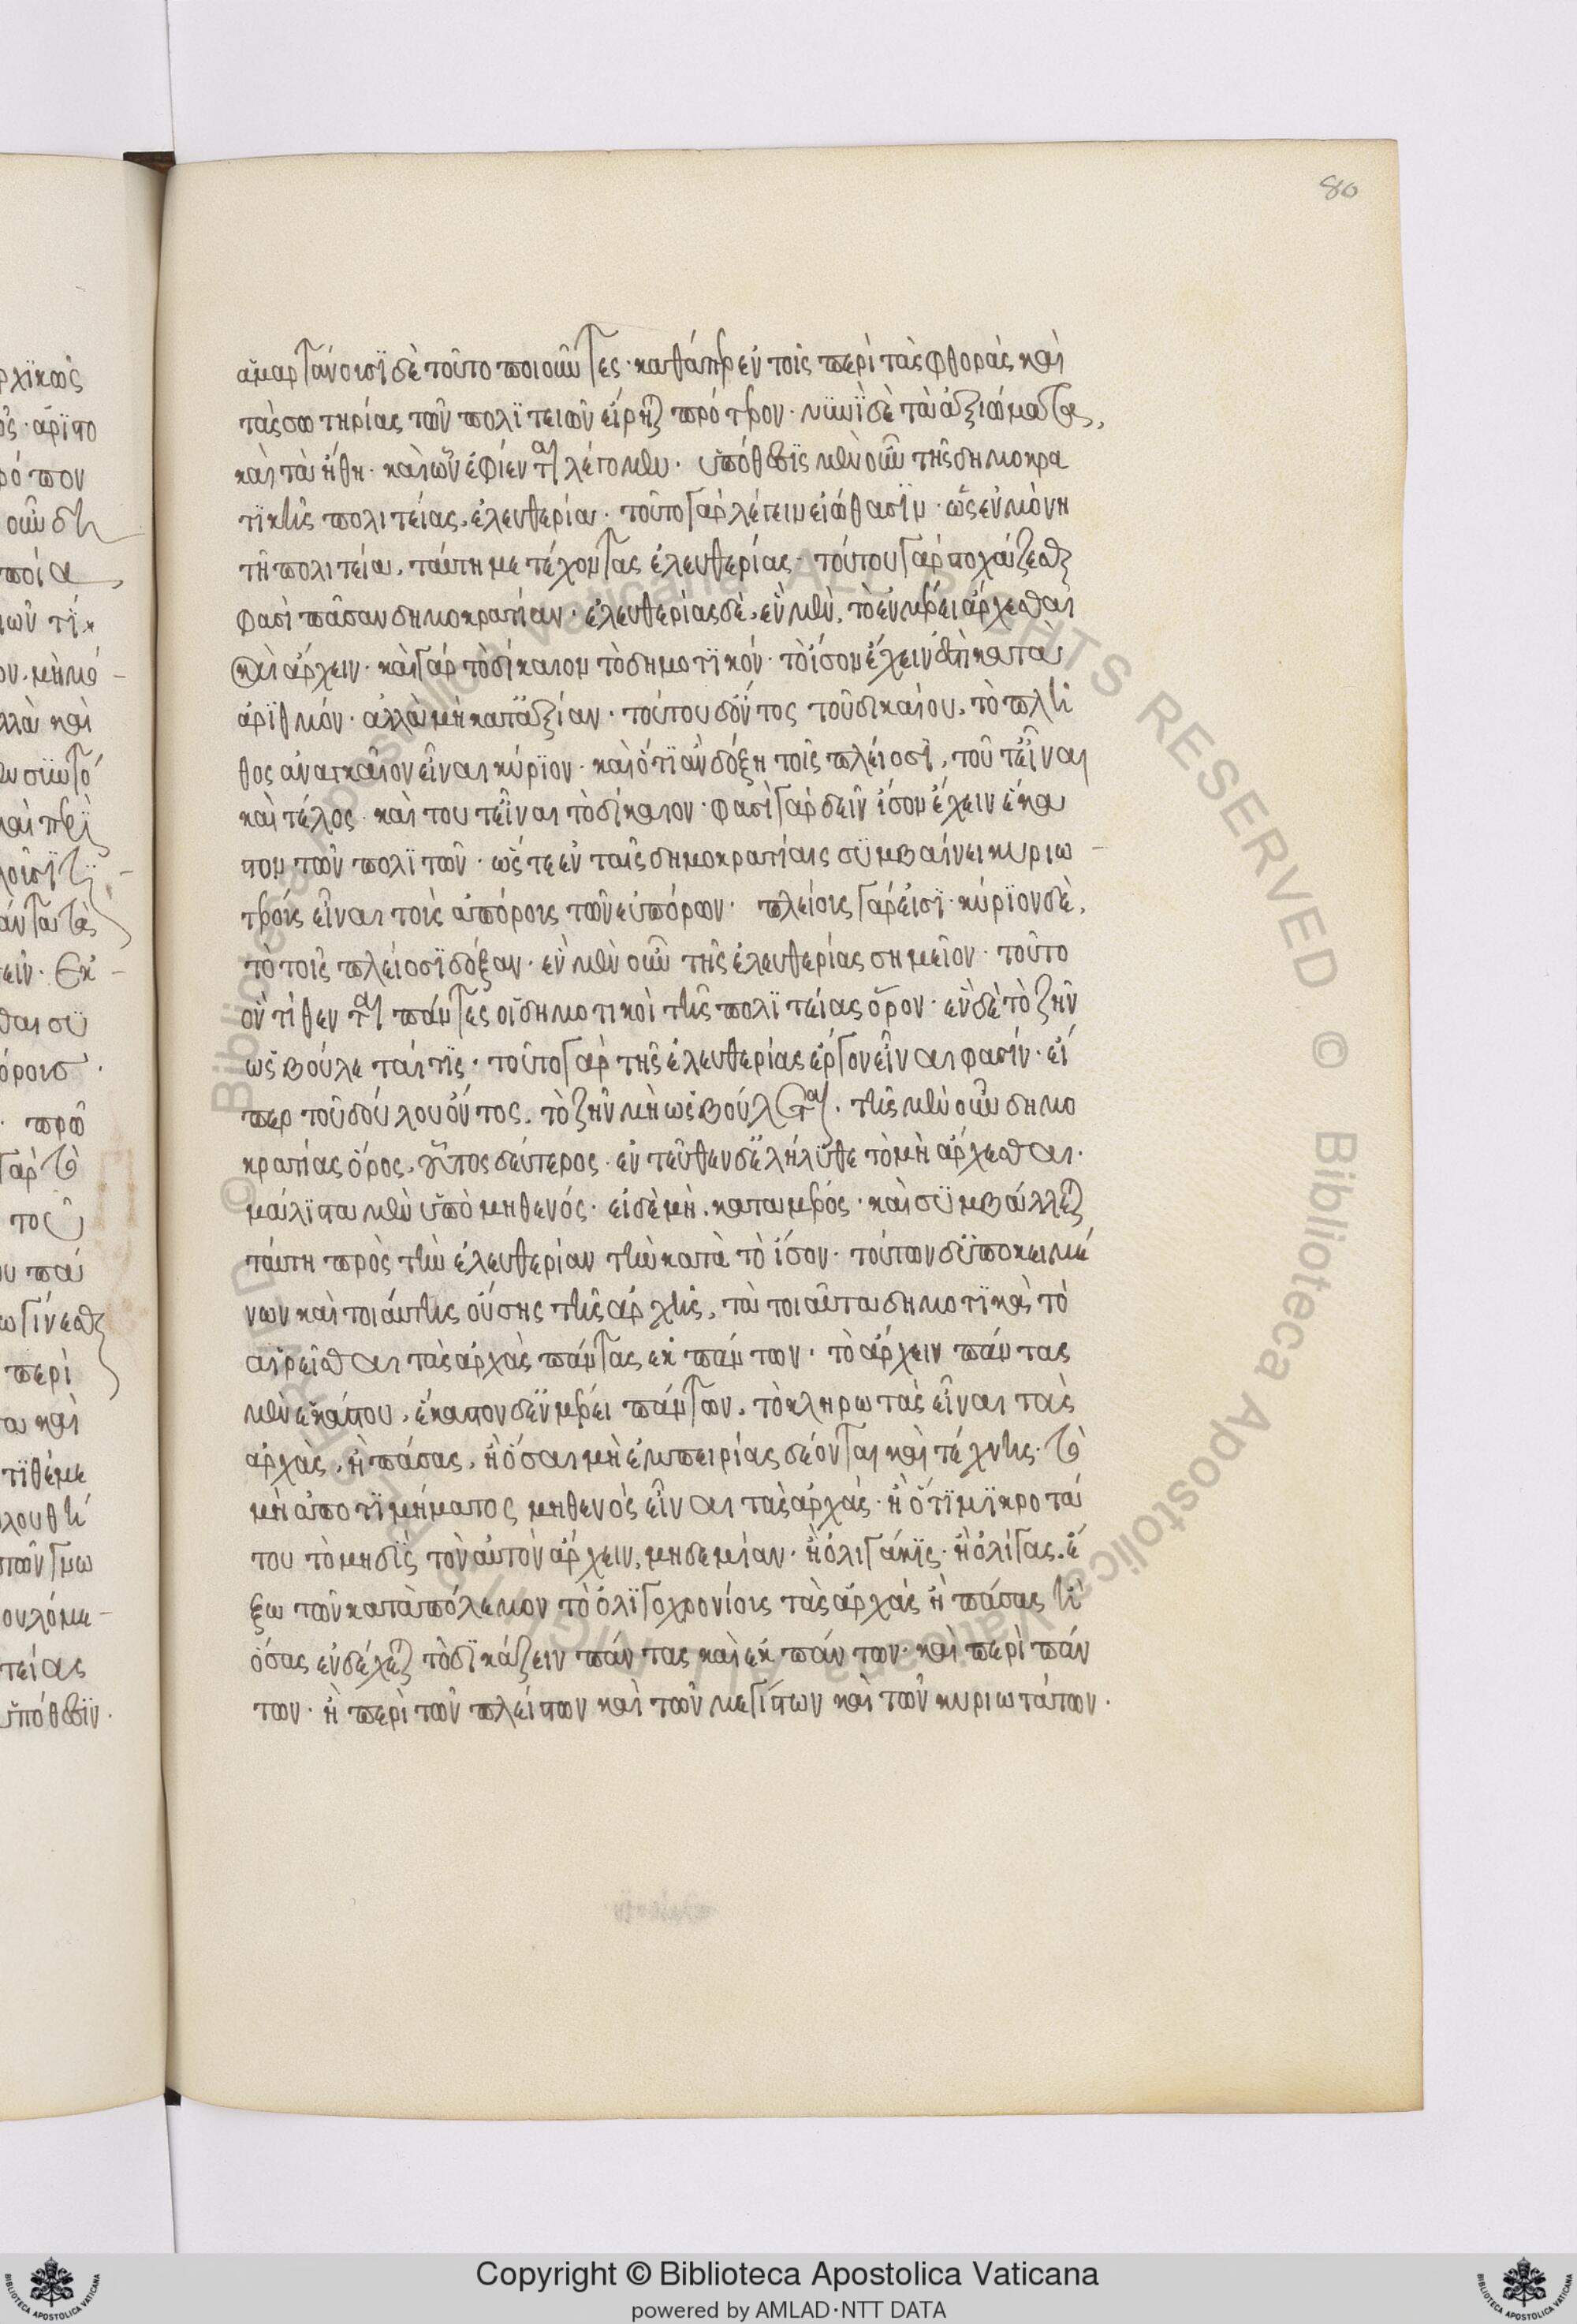 80
ἁμαρτάνουσι δὲ τοῦτο ποιοῦντες· καθάπερ ἐν τοῖς περὶ τὰς φθορὰς καὶ
τὰς σωτηρίας τῶν πολιτειῶν εἴρηται πρότερον· νυνὶ δὲ τὰ ἀξιώματα,
καὶ τὰ ἤθη· καὶ ὧν ἐφίενται λέγομεν· ὑπόθεσις μὲν οὖν τῆς δημοκρα
τικῆς πολιτείας, ἐλευθερία· τοῦτο γὰρ λέγειν εἰώθασιν· ὡς ἐν μόνῃ
τῇ πολιτείᾳ, ταύτῃ μετέχοντας ἐλευθερίας· τούτου γὰρ στοχάζεσθαι
φασὶ πᾶσαν δημοκρατίαν· ἐλευθερίας δὲ, ἓν μὲν, τὸ ἐν μέρει ἄρχεσθαι
καὶ ἄρχειν· καὶ γὰρ τὸ δίκαιον τὸ δημοτικόν· τὸ ἴσον ἔχειν ἐστὶ κατὰ
ἀριθμόν· ἀλλὰ μὴ κατ' ἀξίαν· τούτου δ' ὄντος τοῦ δικαίου, τὸ πλῆ
θος ἀναγκαῖον εἶναι κύριον· καὶ ὅτι ἂν δόξῃ τοῖς πλείοσι, τοῦτ' εἶναι
καὶ τέλος· καὶ τουτ' εἶναι τὸ δίκαιον· φασὶ γὰρ δεῖν ἴσον ἔχειν ἕκα
στον τῶν πολιτῶν· ὥστε ἐν ταῖς δημοκρατίαις συμβαίνει κυριω-
τέρους εἶναι τοὺς ἀπόρους τῶν εὐπόρων· πλείους γάρ εἰσι· κύριον δὲ,
τὸ τοῖς πλείοσι δόξαν· ἓν μὲν οὖν τῆς ἐλευθερίας σημεῖον· τοῦτο
ὃν τίθενται πάντες οἱ δημοτικοὶ τῆς πολιτείας ὅρον· ἓν δὲ τὸ ζῆν
ὡς βούλεταί τις· τοῦτο γὰρ τῆς ἐλευθερίας ἔργον εἶναι φασίν· εἴ
περ τοῦ δούλου ὄντος, τὸ ζῆν μὴ ὡς βούλεται. τῆς μὲν οὖν δημο
κρατίας ὅρος, οὗτος δεύτερος· ἐντεῦθεν δ' ἐλήλυθε τὸ μὴ ἄρχεσθαι·
μάλιστα μὲν ὑπὸ μηθενός· εἰ δὲ μὴ, κατα μέρος· καὶ συμβάλλεται
ταύτῃ πρὸς τὴν ἐλευθερίαν τὴν κατὰ τὸ ἴσον· τούτων δ' ὑποκειμέ
νων καὶ τοιαύτης οὔσης τῆς ἀρχῆς, τὰ τοιαῦτα δημοτικὰ τὸ
αἱρεῖσθαι τὰς ἀρχὰς πάντας ἐκ πάντων· τὸ ἄρχειν πάντας
μὲν ἑκάστου, ἕκαστον δ' ἐν μέρει πάντων, τὸ κληρωτὰς εἶναι τὰς
ἀρχὰς, ἢ πάσας, ἢ ὅσαι μὴ ἐμπειρίας δέονται καὶ τέχνης· τὸ
μὴ ἀπο τιμήματος μηθενὸς εἶναι τὰς ἀρχάς· ἢ ὅτι μικροτά
του τὸ μὴ δὶς τὸν αὐτὸν ἄρχειν, μηδεμίαν· ἢ ὀλιγάκις· ἢ ὀλίγας, ἔ
ξω τῶν κατὰ πόλεμον τὸ ὀλιγοχρονίους τὰς ἀρχάς ἢ πάσας ἢ
ὅσας ἐνδέχεται τὸ δικάζειν πάντας καὶ ἐκ πάντων· καὶ περὶ πάν
των· ἢ περὶ τῶν πλείστων καὶ τῶν μεγίστων καὶ τῶν κυριωτάτων·
Copyright © Biblioteca Apostolica Vaticana
powered by AMLAD·NTT DATA